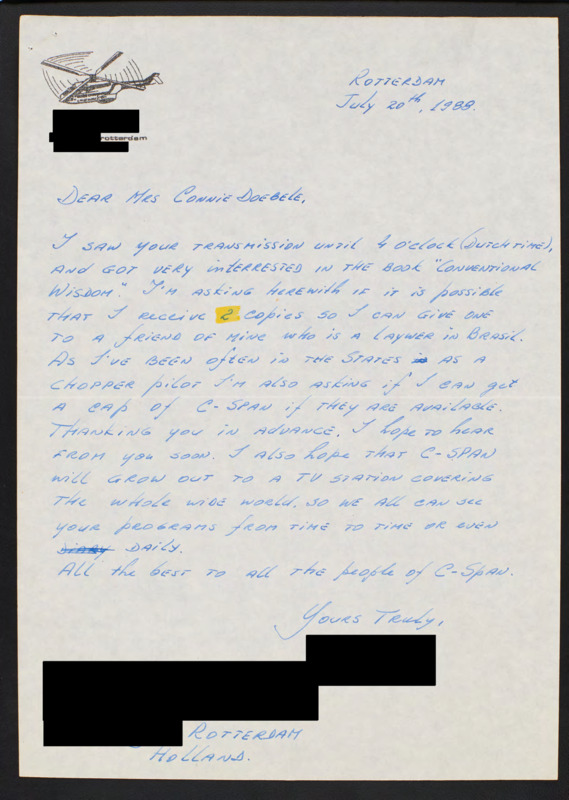 rotterdam
ROTTERDAM
July 20th, 1988.
DEAR MRS CONNIE DOEBELE,
I SAW YOUR TRANSMISSION UNTIL 4 O'CLOCK (DUTCH TIME),
AND GOT VERY INTERRESTED IN THE BOOK "CONVENTIONAL
WISDOM". I'M ASKING HEREWITH IF IT IS POSSIBLE
THAT I RECEIVE 2 COPIES SO I CAN GIVE ONE
TO A FRIEND OF MINE WHO IS A LAYWER IN BRASIL.
AS I'VE BEEN OFTEN IN THE STATES AS A
CHOPPER PILOT I'M ALSO ASKING IF I CAN GET
A CAP OF C-SPAN IF THEY ARE AVAILABLE.
THANKING YOU IN ADVANCE, I HOPE TO HEAR
FROM YOU SOON. I ALSO HOPE THAT C-SPAN
WILL GROW OUT TO A TV STATION COVERING
THE WHOLE WIDE WORLD, SO WE ALL CAN SEE
YOUR PROGRAMS FROM TIME TO TIME OR EVEN
DAILY.
ALL THE BEST TO ALL THE PEOPLE OF C-SPAN.
YOURS TRULY,
ROTTERDAM
HOLLAND.